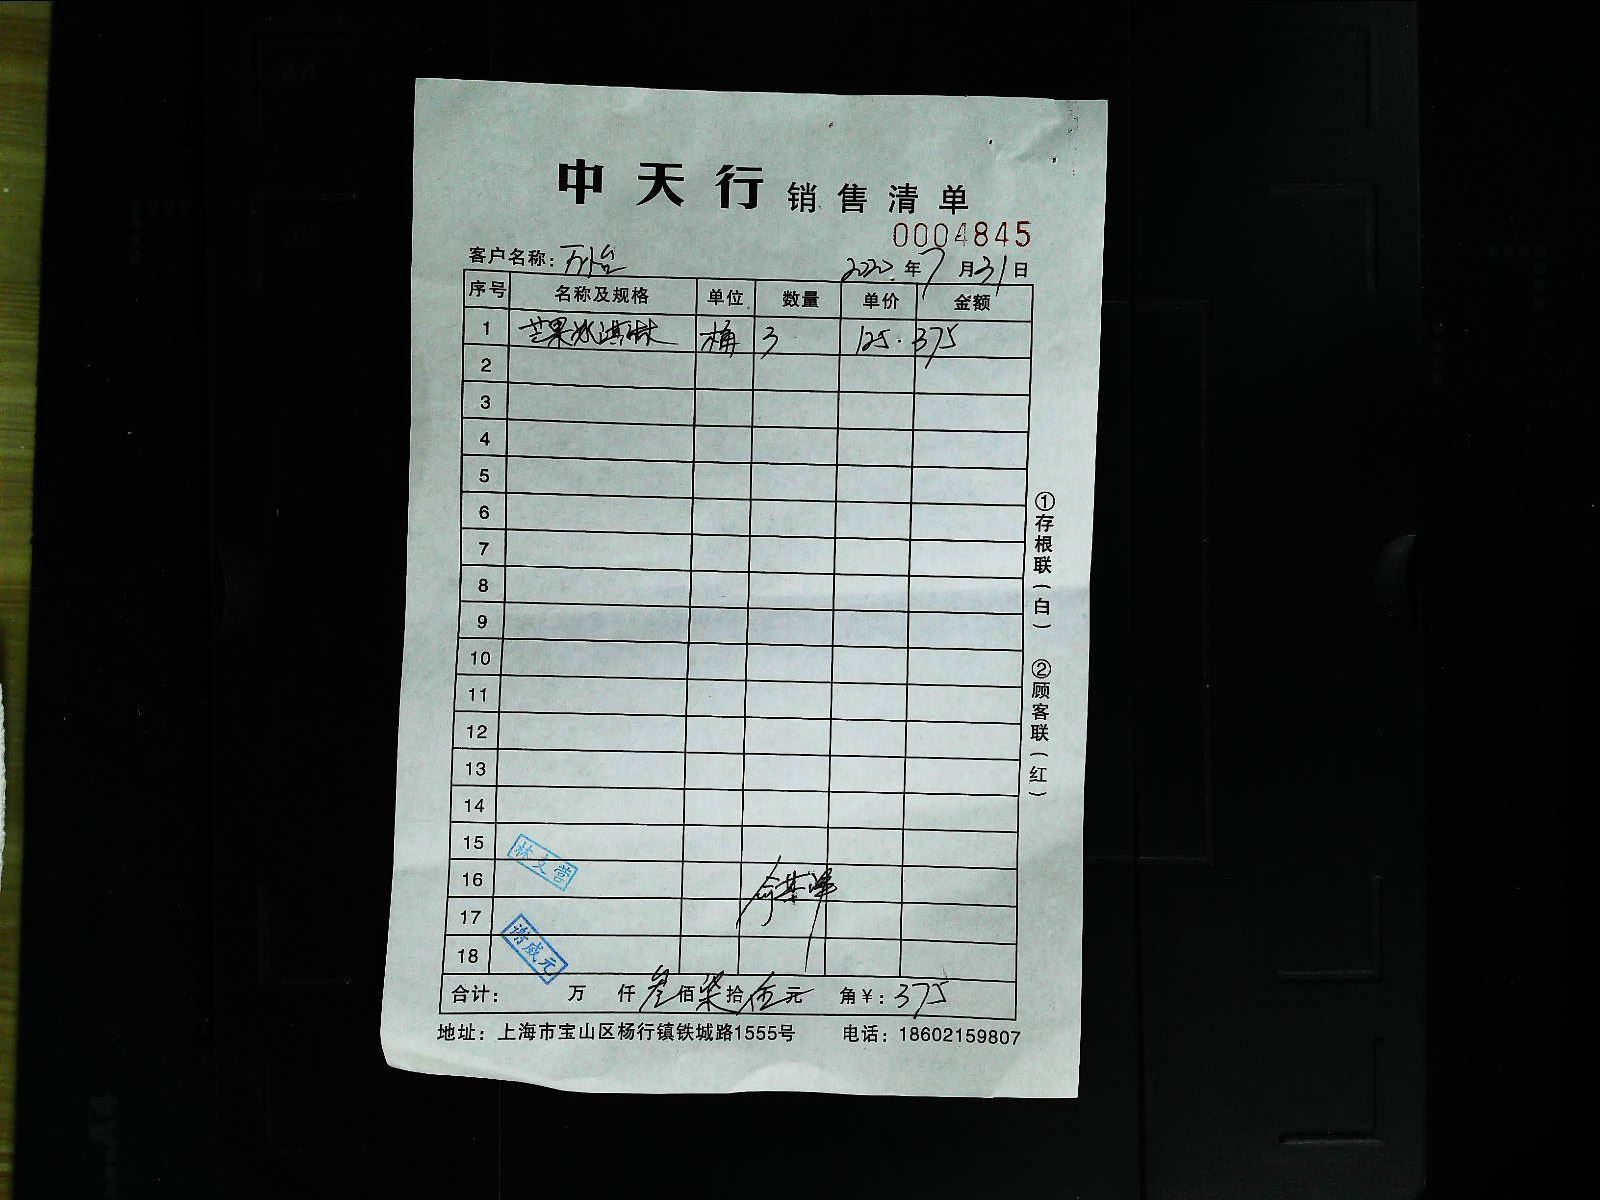 中天行 销售清单
0004845
客户名称: 万怡 2020年7月31日
序号 名称及规格 单位 数量 单价 金额
1 芒果冰淇淋 桶 3 125. 375
2
3
4
5
6
7
8
9
10
11
12
13
14
15
16
17
18
林文营
谢威元
合计: 万 仟 叁佰柒拾伍元 角¥: 375
地址: 上海市宝山区杨行镇铁城路1555号 电话: 18602159807
①存根联(白) ②顾客联(红)